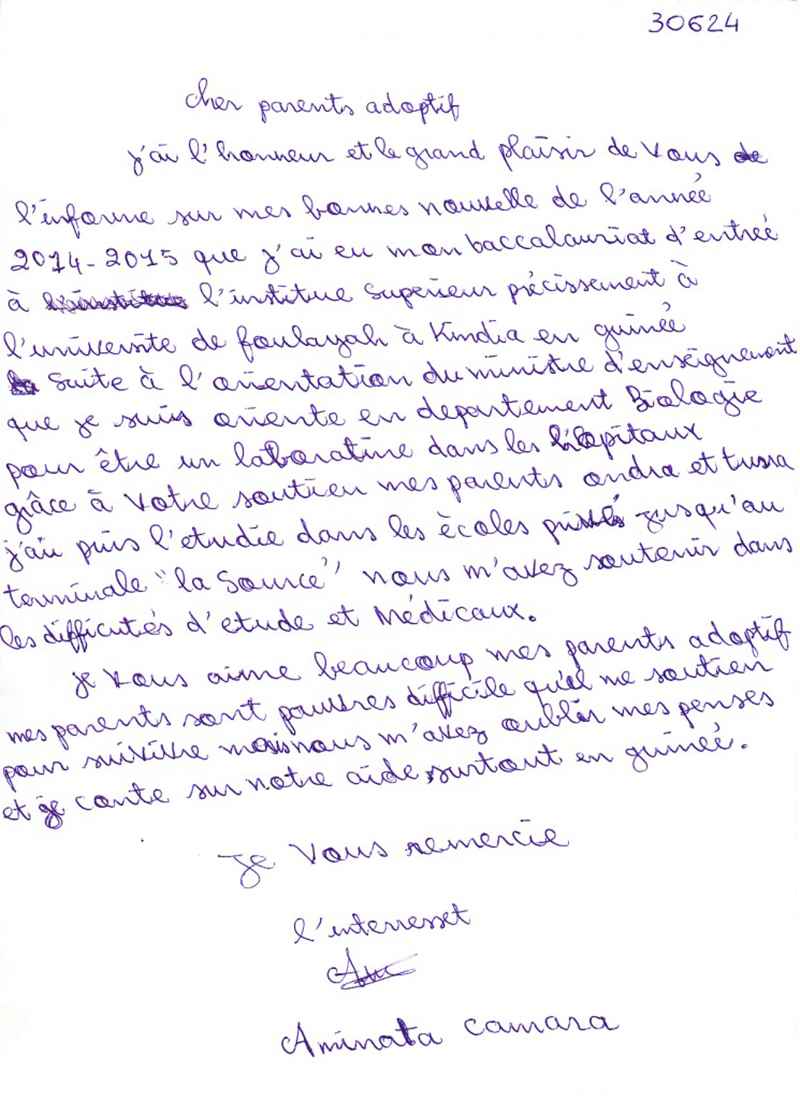 30624
Cher parents adoptif
j'ai l'honneur et le grand plaisir de vous de
l'informe sur mes bonnes nouvelle de l'année
2014-2015 que j'ai eu mon baccalauriat d'entrée
à l'institue Superieur précissement à
l'université de foulayah à Kindia en guinée
Suite à l'orientation du ministre d'enseignement
que je suis oriente en departement Biologie
pour être un laboratine dans les hôpitaux
grâce à votre soutien mes parents ondra et tussa
j'ai puis l'etudie dans les écoles privés jusqu'au
terminale "la Source", nous m'avez soutenir dans
les difficutiés d'etude et Médicaux.
je vous aime beaucoup mes parents adoptif
mes parents sont pauvres difficile qu'el me soutien
pour suivivre mais nous m'avez oublir mes penses
et je conte sur notre aide surtout en guinée.
Je vous remercie
l'interresset
Aminata Camara